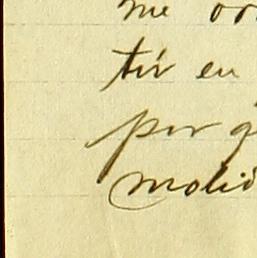 me or
tir en
por q
molid